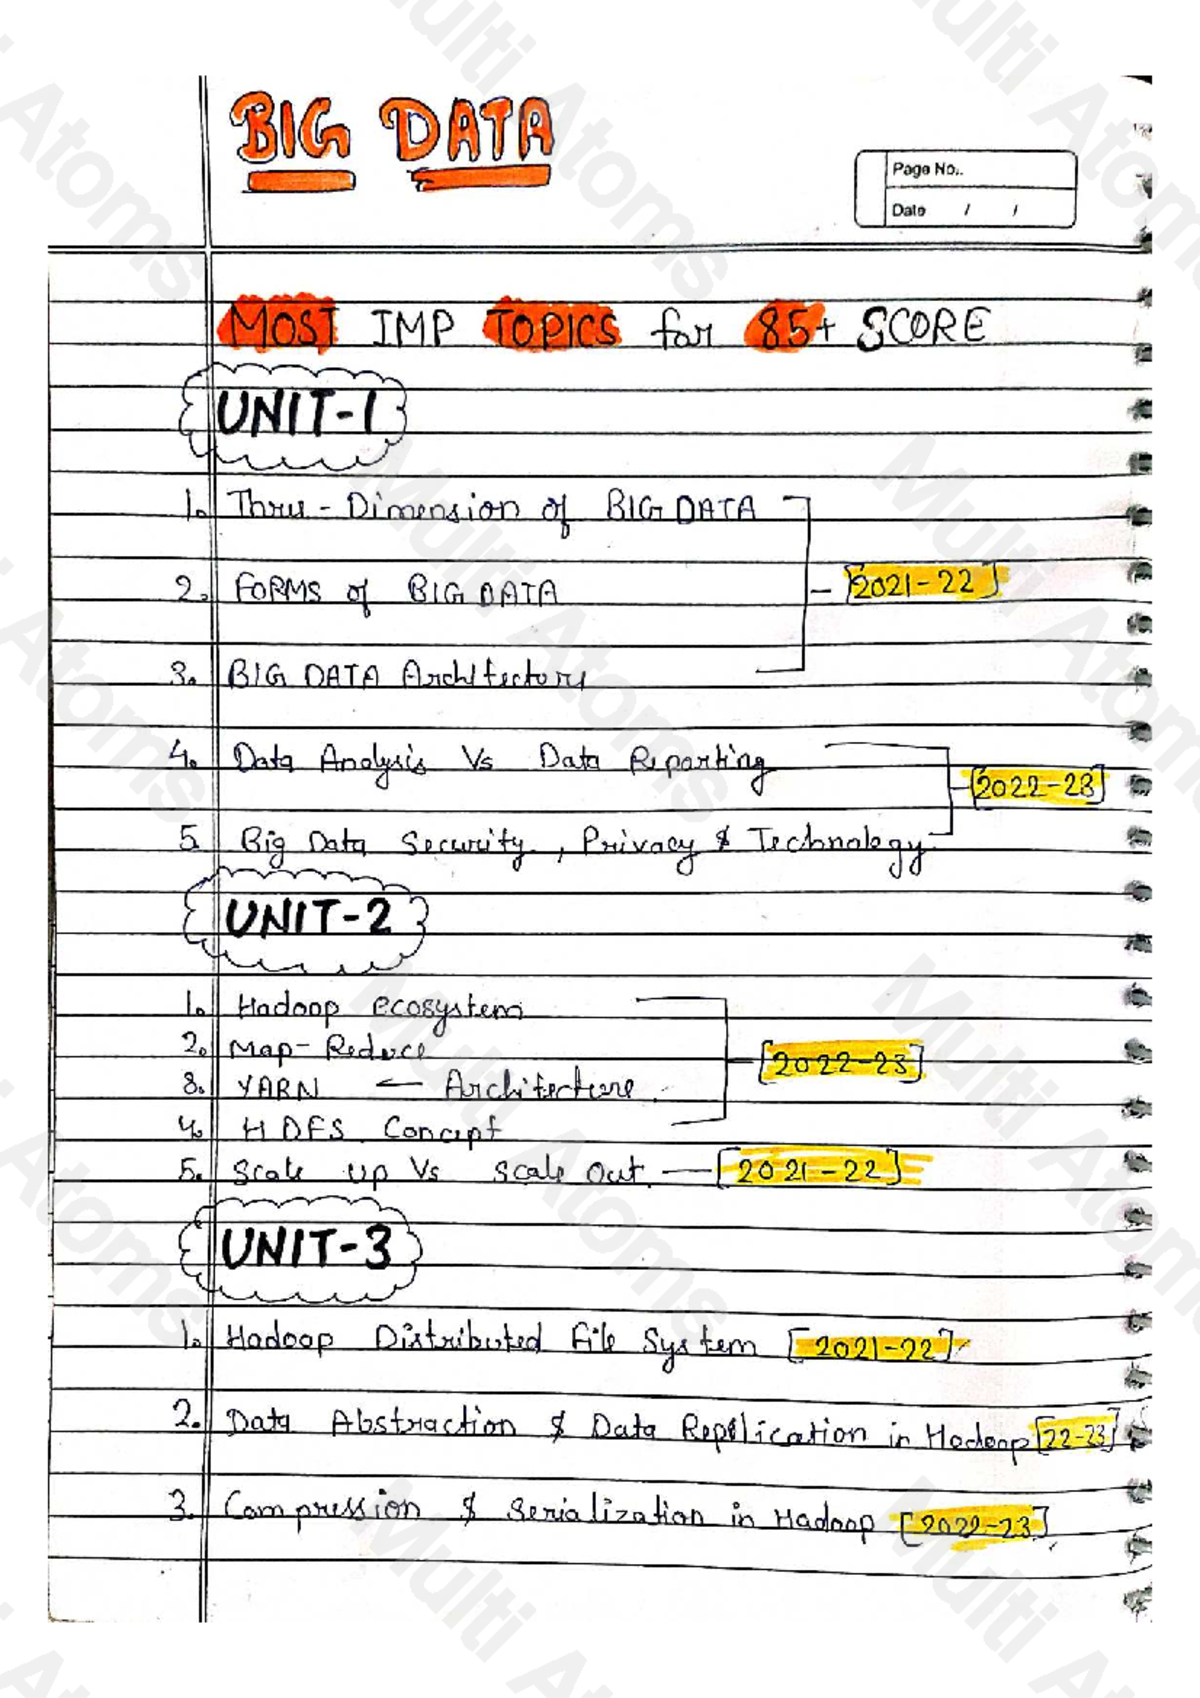 BIG DATA
Page No..
Date / /
MOST IMP TOPICS for 85+ SCORE
UNIT-1
1. Three-Dimension of BIG DATA
2. FORMS of BIG DATA
[2021-22]
3. BIG DATA Architectory
4. Data Analysis Vs Data Reporting
[2022-23]
5. Big Data Security, Privacy & Technology
UNIT-2
1. Hadoop ecosystem
2. Map-Reduce
[2022-23]
3. YARN ← Architecture
4. HDFS Concept
5. Scale Up Vs Scale Out — [2021-22]
UNIT-3
1. Hadoop Distributed File System [2021-22]
2. Data Abstraction & Data Replication in Hadoop [22-23]
3. Compression & Serialization in Hadoop [2022-23]
Multi Atoms